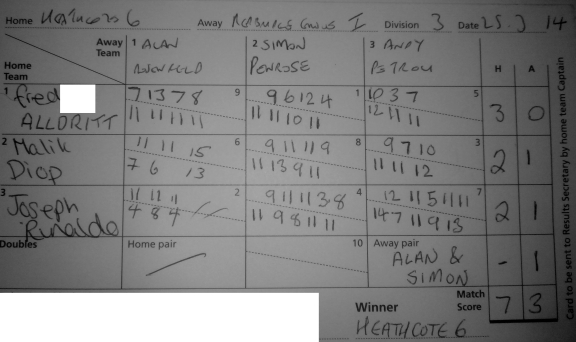 Home HEATHCOTE 6 Away I Division 3 Date 25.3 14
Away Team 1 ALAN 2 SIMON 3 ANDY H A
Home Team PENROSE
1 fred 7 13 7 8 9 9 6 12 4 1 10 3 7 5 3 0
ALLDRITT 11 11 11 11 11 11 11 10 11 12 11 11
2 Malik 11 11 15 6 9 11 11 9 8 9 7 10 3 2 1
Diop 7 6 13 11 13 9 11 11 11 12
3 Joseph 11 12 11 2 9 11 11 3 8 4 12 11 5 11 11 7 2 1
Rinaldo 4 8 4 11 9 8 11 11 14 7 11 9 13
Doubles Home pair 10 Away pair - 1
ALAN &
SIMON
Winner Match Score 7 3
HEATHCOTE 6
Card to be sent to Results Secretary by home team Captain